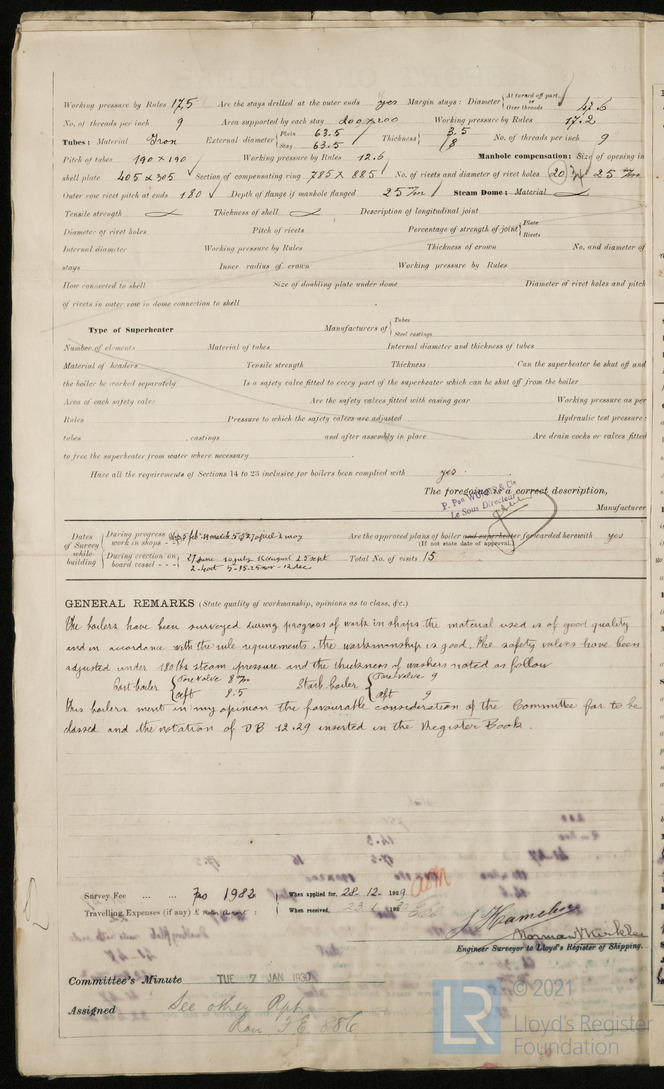 Working pressure by Rules 17.5 Are the stays drilled at the outer ends yes Margin stays: Diameter { At turned off part, or Over threads 42.6
No. of threads per inch 9 Area supported by each stay 200 x 200 Working pressure by Rules 17.2
Tubes: Material Iron External diameter { Plain 63.5 Stay 63.5 Thickness { 3.5 8 No. of threads per inch 9
Pitch of tubes 190 x 190 Working pressure by Rules 12.6 Manhole compensation: Size of opening in
shell plate 405 x 305 Section of compensating ring 785 x 885 No. of rivets and diameter of rivet holes 20 25
Outer row rivet pitch at ends 180 Depth of flange if manhole flanged 25 Steam Dome: Material
Tensile strength Thickness of shell Description of longitudinal joint
Diameter of rivet holes Pitch of rivets Percentage of strength of joint { Plate Rivets
Internal diameter Working pressure by Rules Thickness of crown No. and diameter of
stays Inner radius of crown Working pressure by Rules
How connected to shell Size of doubling plate under dome Diameter of rivet holes and pitch
of rivets in outer row in dome connection to shell
Type of Superheater Manufacturers of { Tubes Steel castings
Number of elements Material of tubes Internal diameter and thickness of tubes
Material of headers Tensile strength Thickness Can the superheater be shut off and
the boiler be worked separately Is a safety valve fitted to every part of the superheater which can be shut off from the boiler
Area of each safety valve Are the safety valves fitted with easing gear Working pressure as per
Rules Pressure to which the safety valves are adjusted Hydraulic test pressure:
tubes , castings and after assembly in place Are drain cocks or valves fitted
to free the superheater from water where necessary
Have all the requirements of Sections 14 to 23 inclusive for boilers been complied with yes.
The foregoing is a correct description,
P. Pon WORMS & Cie
Le Sous Directeur
Manufacturer
Dates of Survey while building { During progress of work in shops - - 5 feb 27 april 2 may Are the approved plans of boiler and superheater forwarded herewith yes
(If not state date of approval.)
During erection on board vessel - - - 27 June 25 sept 2-4 oct 12 dec Total No. of visits 15
GENERAL REMARKS (State quality of workmanship, opinions as to class, &c.)
The boilers have been surveyed during progress of work in shops the material used is of good quality
and in accordance with the rule requirements. the workmanship is good. The safety valves have been
adjusted under 180 lbs steam pressure and the thickness of washers noted as follow
Port boiler { Fore valve 8 aft 8.5 Starb. boiler { Fore valve. 9 aft 9
This boilers merit in my opinion the favourable consideration of the Committee for to be
classed and the notation of DB 12.29 inserted in the Register Book.
Survey Fee ... ... Frs 1982 When applied for, 28-12-1929
Travelling Expenses (if any) £ : : When received,
Engineer Surveyor to Lloyd's Register of Shipping.
Committee's Minute TUE 7 JAN 1930
Assigned See other Rpt.
886
© 2021
Lloyd's Register
Foundation
LR